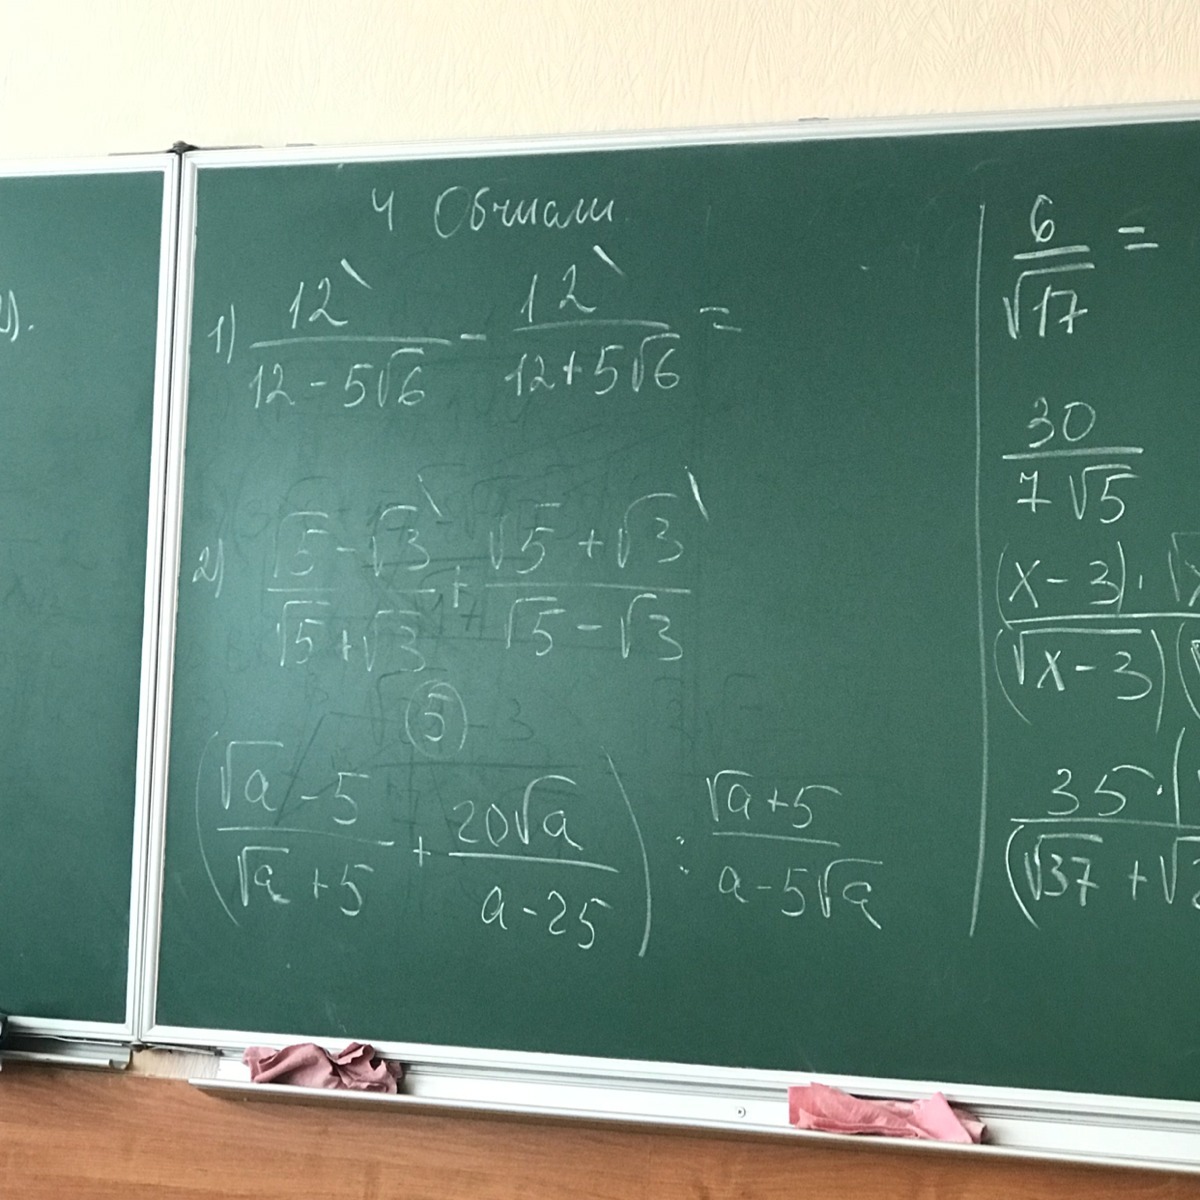 2).
4 Обчисли
1) 12 / (12 - 5√6) - 12 / (12 + 5√6) =
2) (√5 - √3) / (√5 + √3) + (√5 + √3) / (√5 - √3)
5
((√a - 5) / (√a + 5) + 20√a / (a - 25)) : (√a + 5) / (a - 5√a)
6 / √17 =
30 / 7√5
(x - 3) · √x / (√x - 3)(
35 · ( / (√37 + √